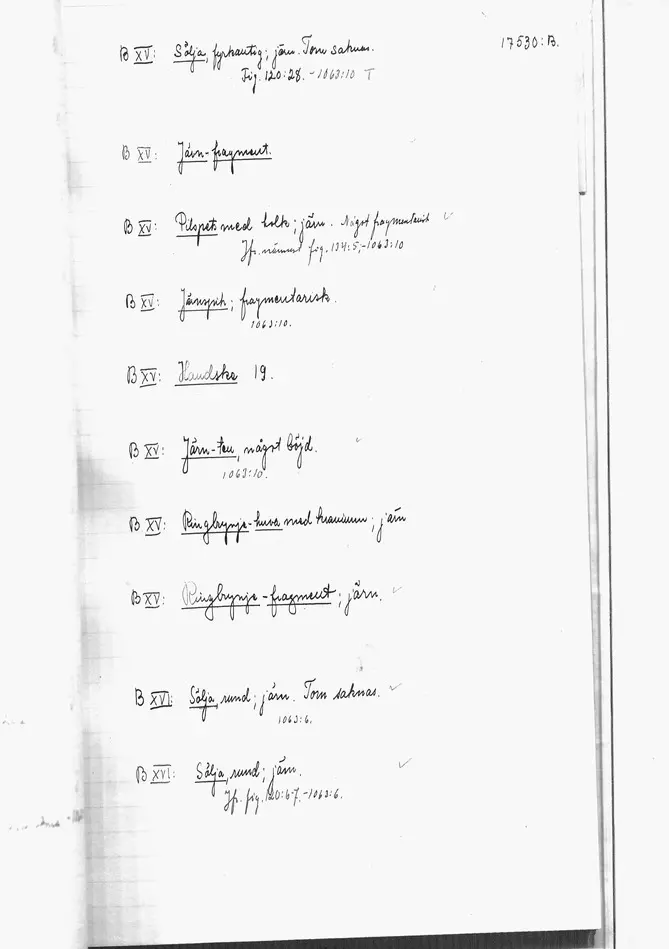 17530:B.
B XV: Sölja, fyrkantig; järn. Torn saknas.
Fig. 120:28. - 1063:10 T
B XV: Järn-fragment.
B XV: Pilspets med holk; järn. Något fragmentarisk
Jfr. närmast fig. 134:5, - 1063:10
B XV: fragmentarisk.
1063:10.
B XV: Handske 19.
B XV: Järn-ten, något böjd.
1063:10.
B XV: Ringbrynje-huva med kranium; järn
B XV: Ringbrynje-fragment; järn.
B XVI: Sölja, rund; järn. Torn saknas.
1063:6.
B XVI: Sölja, rund; järn.
Jfr. fig. 120:6-7. - 1063:6.